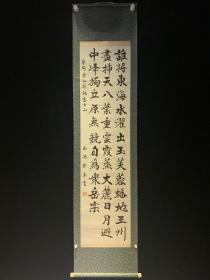 誰將東海水濯出玉芙蓉蟠地三州
盡插天八葉重雲霞蒸大麓日月避
中峰獨立原無競自為衆岳宗